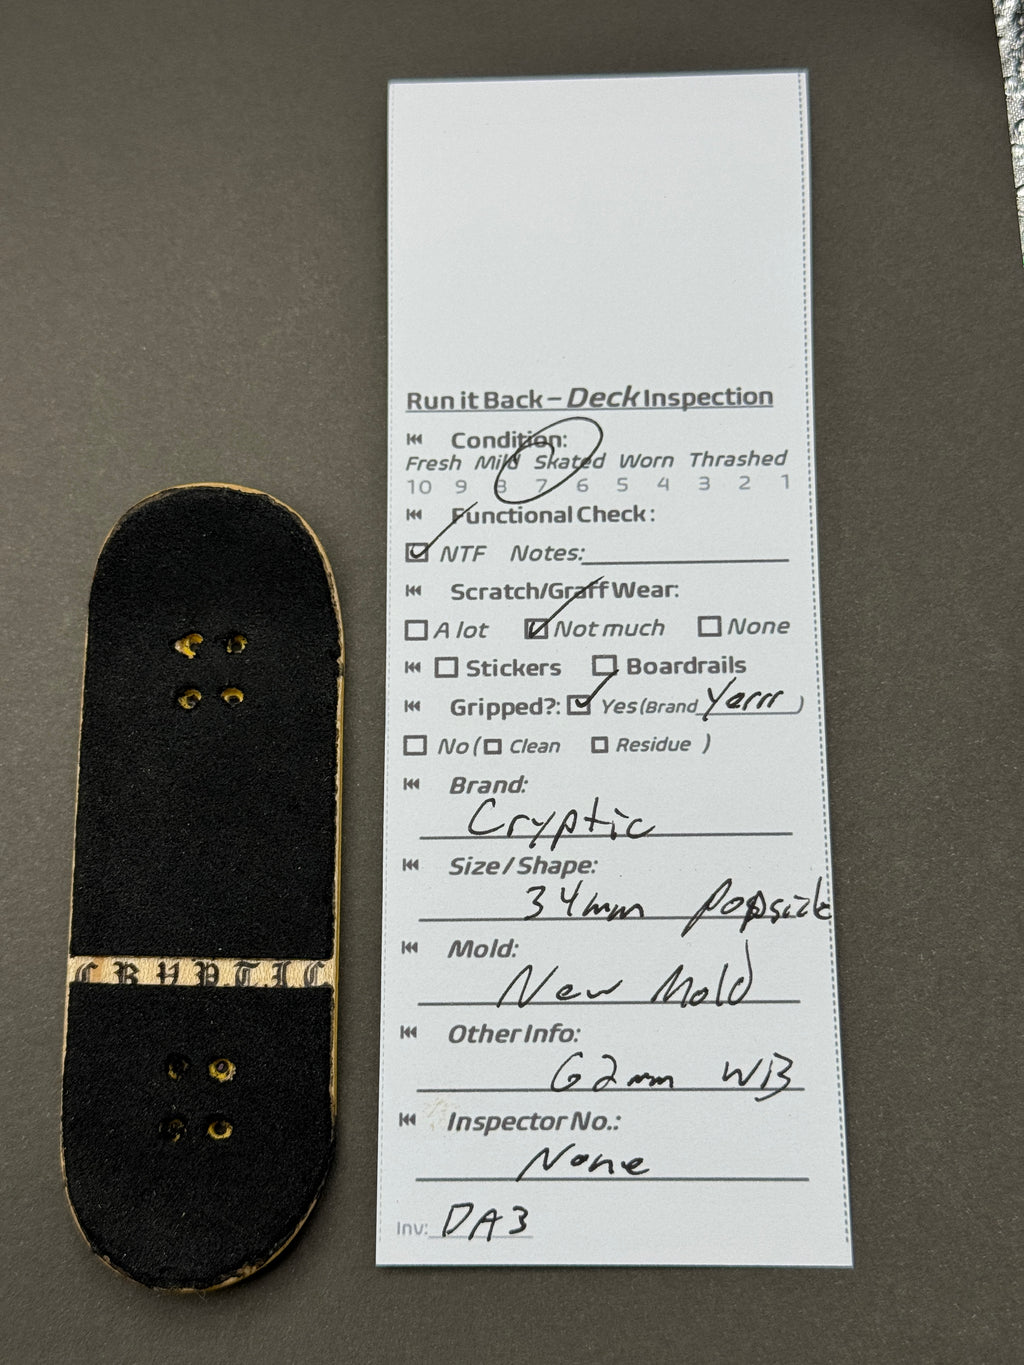 Run it Back – Deck Inspection
Condition:
Fresh Mild Skated Worn Thrashed
10 9 8 7 6 5 4 3 2 1
Functional Check:
NTF Notes:
Scratch/Graff Wear:
A lot Not much None
Stickers Boardrails
Gripped?: Yes (Brand Yerrr )
No ( Clean Residue )
Brand:
Cryptic
Size / Shape:
34mm Popsicle
Mold:
New Mold
Other Info:
62mm WB
Inspector No.:
None
Inv: DA3
CRYPTIC